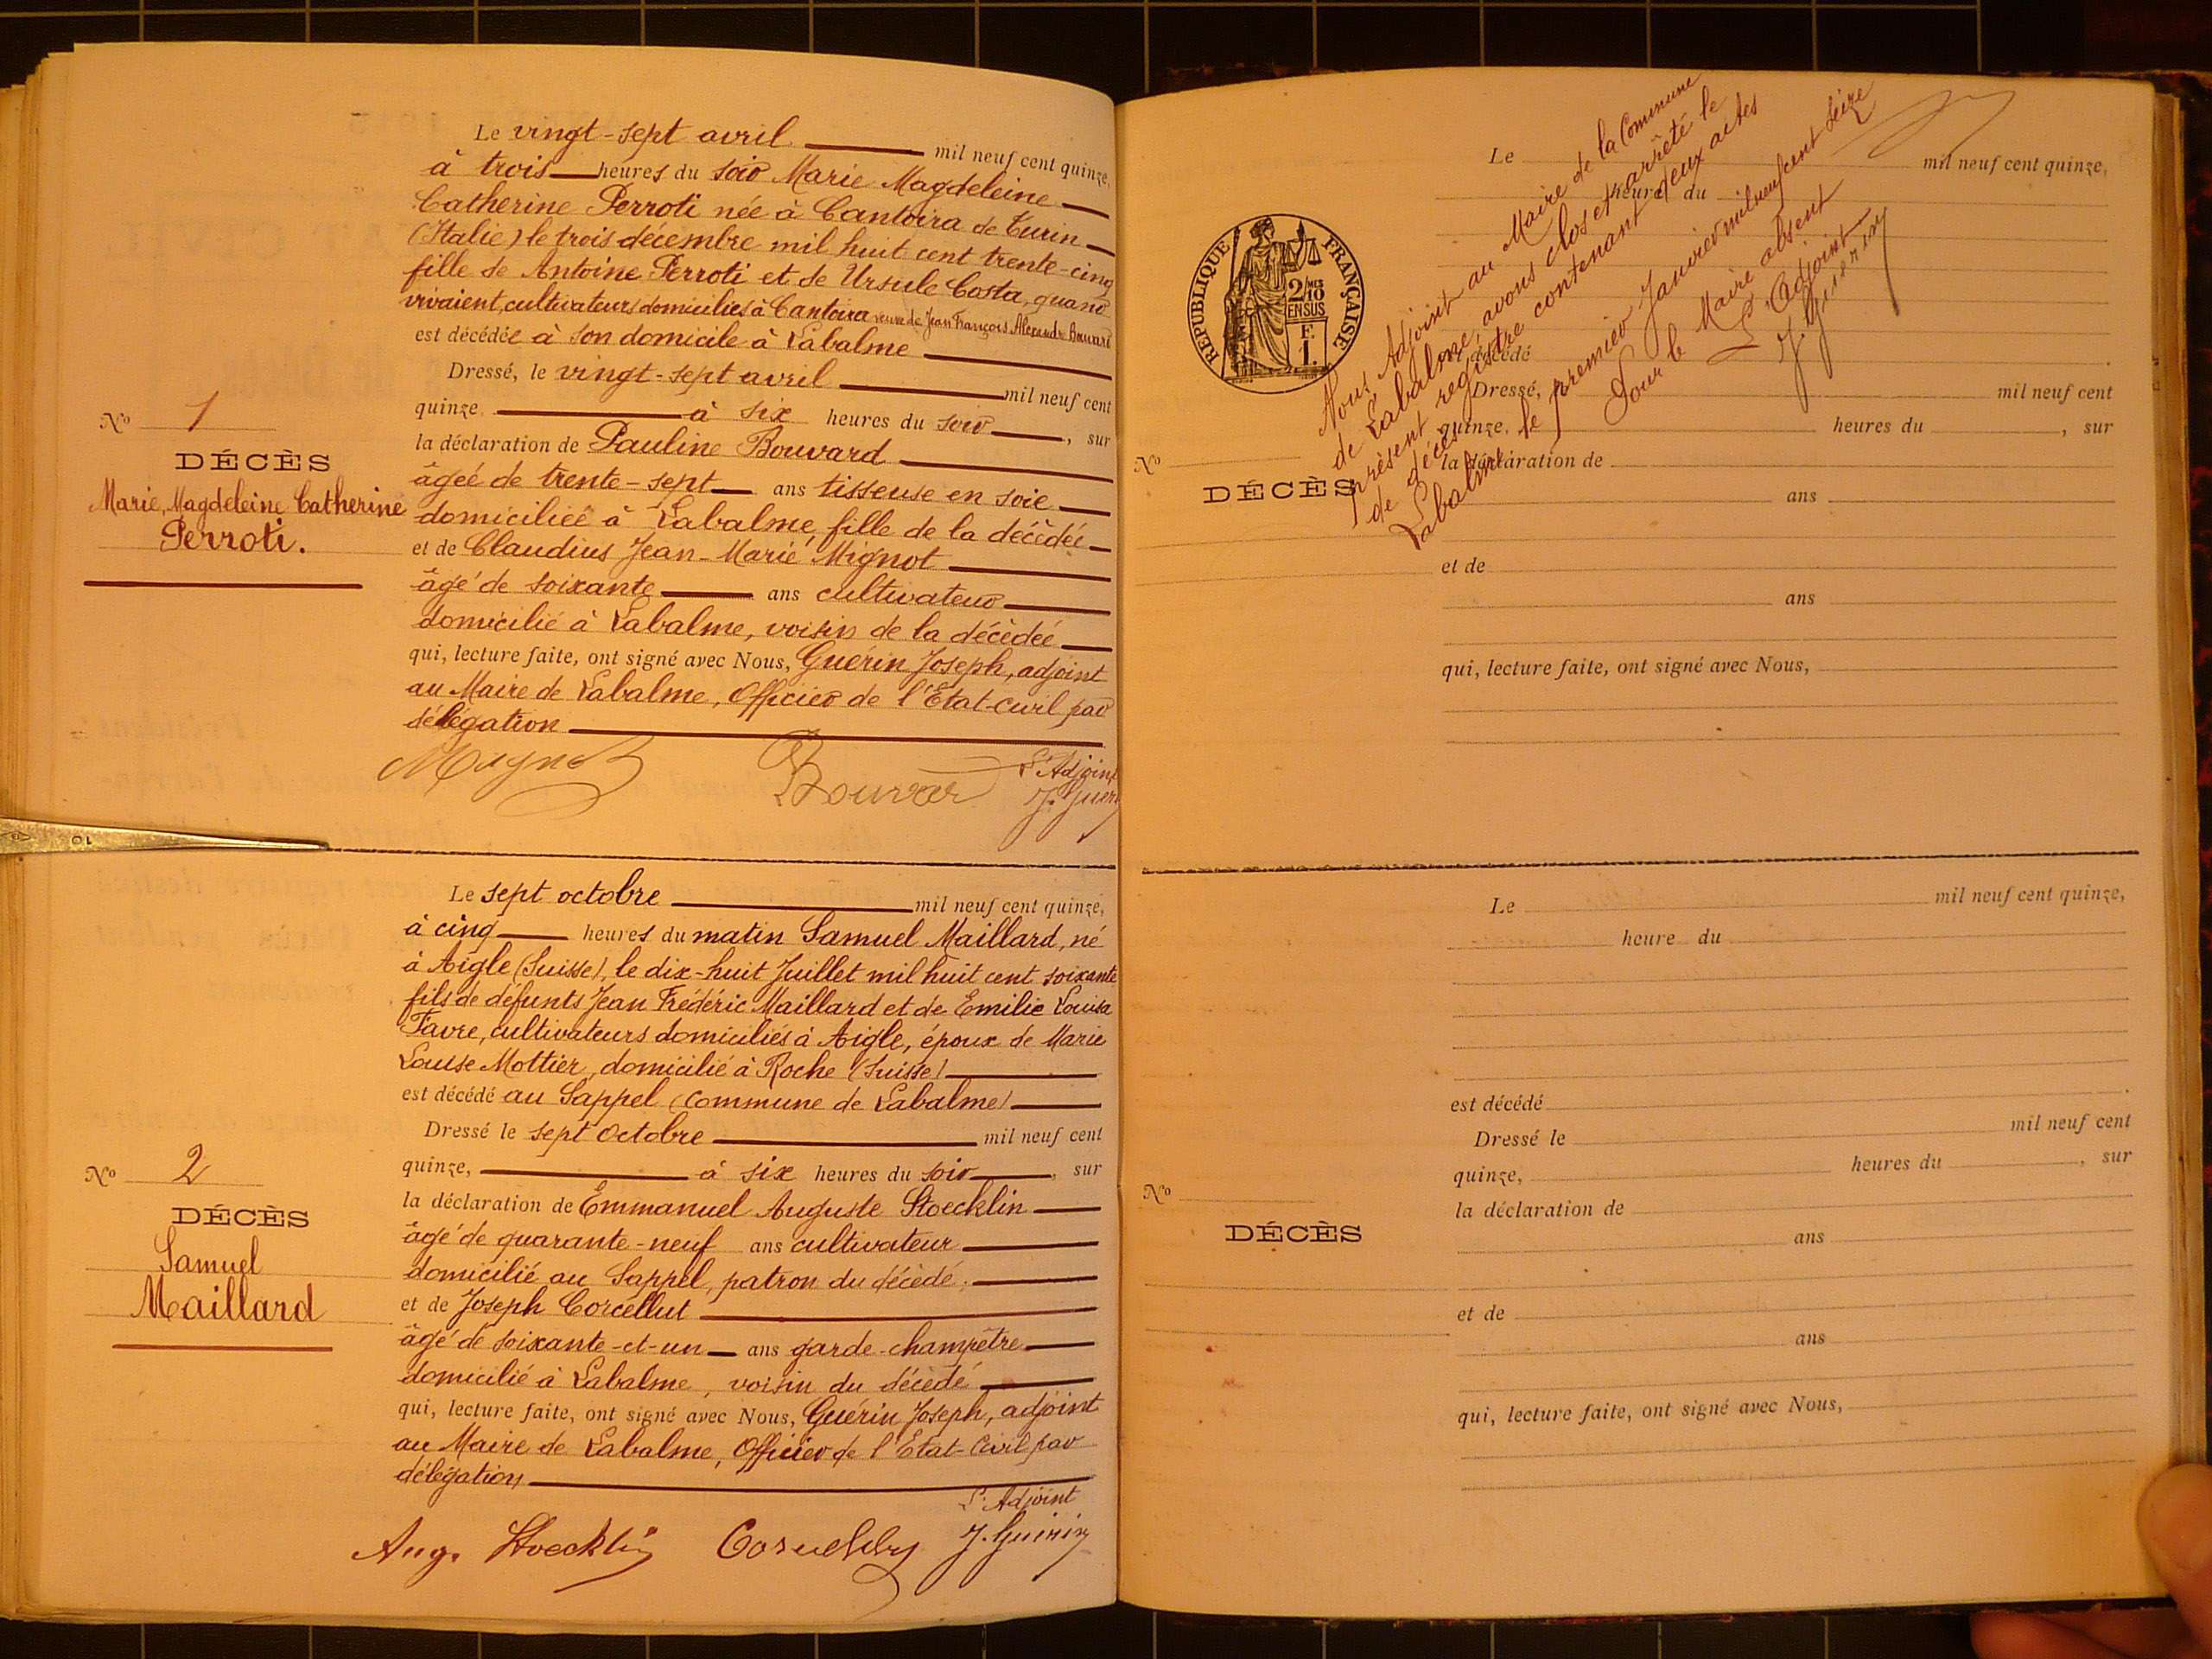 Le vingt-sept avril mil neuf cent quinze,
à trois heures du soir Marie Magdeleine
Catherine Perroti née à Cantoira de Turin
(Italie) le trois décembre mil huit cent trente-cinq
fille de Antoine Perroti et de Ursule Costa, quand
vivaient, cultivateurs domiciliés à Cantoira veuve de Jean François Alexandre Bouvard
est décédée à son domicile à Labalme
Dressé, le vingt-sept avril mil neuf cent
quinze à six heures du soir, sur
la déclaration de Pauline Bouvard
âgée de trente-sept ans tisseuse en soie
domiciliée à Labalme, fille de la décédée
et de Claudius Jean-Marie Mignot
âgé de soixante ans cultivateur
domicilié à Labalme, voisin de la décédée
qui, lecture faite, ont signé avec Nous, Guérin Joseph, adjoint
au Maire de Labalme, Officier de l'Etat-civil par
délégation
No 1
DÉCÈS
Marie, Magdeleine Catherine
Perroti.
Mignot
Bouvar
L'Adjoint
J. Guéri
10
Le sept octobre mil neuf cent quinze,
à cinq heures du matin Samuel Maillard, né
à Aigle (Suisse), le dix-huit Juillet mil huit cent soixante
fils de défunts Jean Frédéric Maillard et de Emilie Louisa
Favre, cultivateurs domiciliés à Aigle, époux de Marie
Louise Mottier, domicilié à Roche (Suisse)
est décédé au Sappel (commune de Labalme)
Dressé le sept Octobre mil neuf cent
quinze, à six heures du soir, sur
la déclaration de Emmanuel Auguste Stoecklin
âgé de quarante-neuf ans cultivateur
domicilié au Sappel, patron du décédé.
et de Joseph Corcellut
âgé de soixante-et-un ans garde-champêtre
domicilié à Labalme, voisin du décédé
qui, lecture faite, ont signé avec Nous, Guérin Joseph, adjoint
au Maire de Labalme, Officier de l'Etat-Civil par
délégation
No 2
DÉCÈS
Samuel
Maillard
Aug. Stoecklin
L'Adjoint
J. Guérin
Nous Adjoint au Maire de la Commune
de Labalme, avons clos et arrêté le
présent registre contenant deux actes
de décès
Labalme le premier Janvier mil neuf cent seize
Pour le Maire absent
L'Adjoint
J. Guérin
RÉPUBLIQUE FRANÇAISE
2/10 MES
EN SUS
F.
1.
Le mil neuf cent quinze,
heure du
décédé
Dressé, mil neuf cent
quinze, heures du , sur
la déclaration de
ans
et de
ans
qui, lecture faite, ont signé avec Nous,
No
DÉCÈS
Le mil neuf cent quinze,
heure du
est décédé
Dressé le mil neuf cent
quinze, heures du , sur
la déclaration de
ans
et de
ans
qui, lecture faite, ont signé avec Nous,
No
DÉCÈS